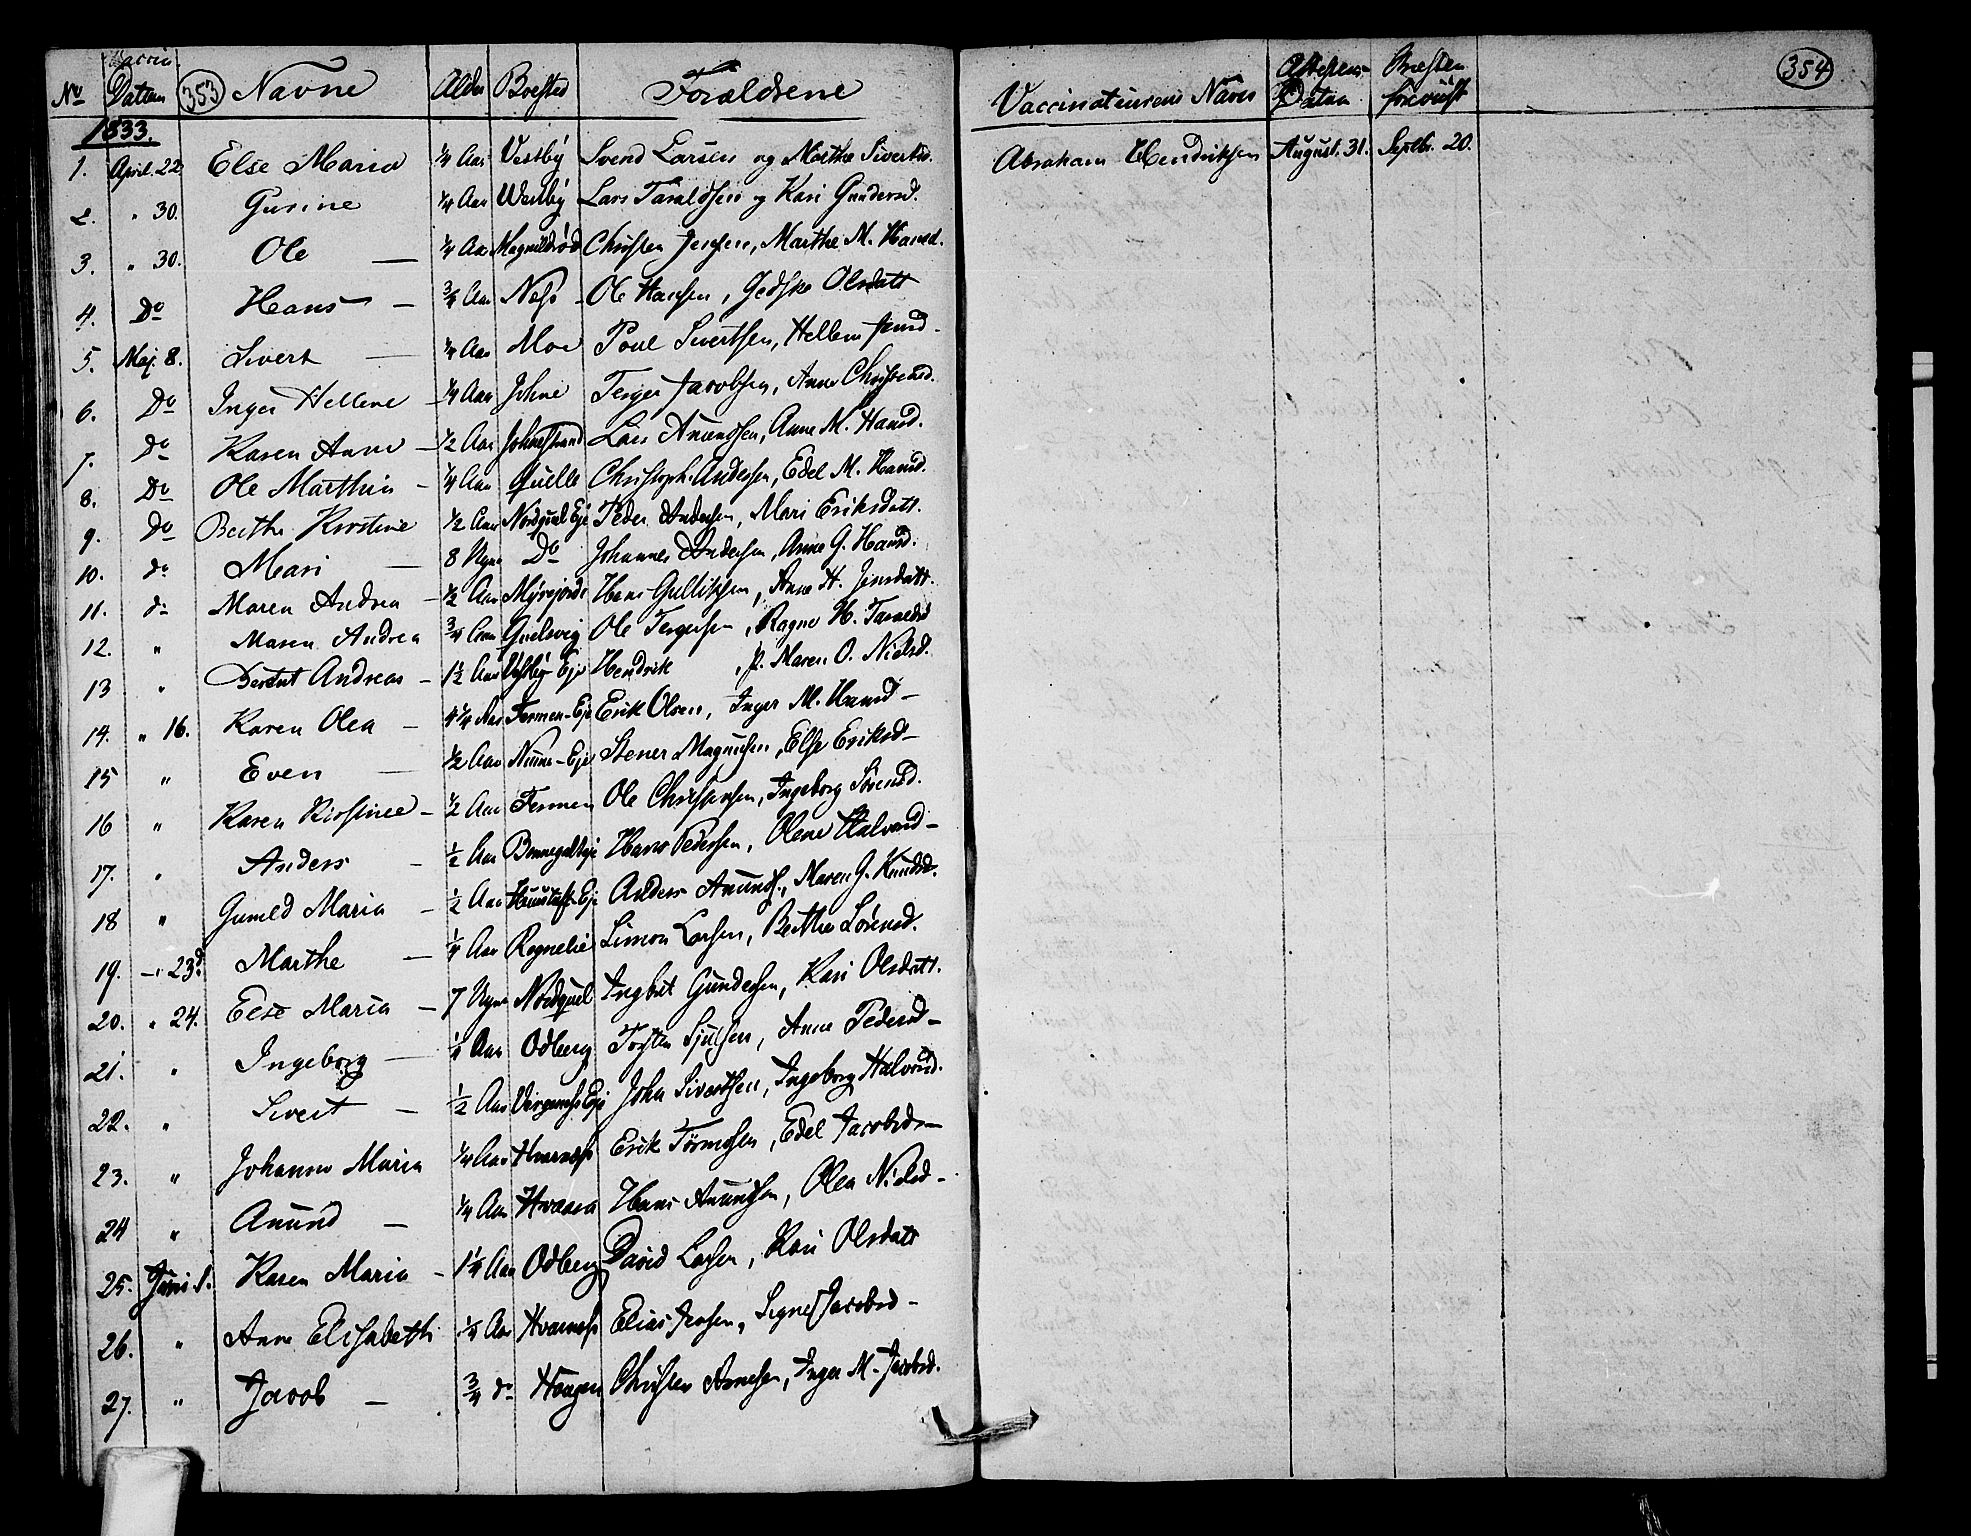 No Vaccin. Datum 353 Navne Alder Bosted Forældrene Vaccinateurens Navn Attestens Datum Præsten foreviist 354
1833.
1. April 22 Else Maria ¼ Aar Vestby Svend Larsen og Marthe Sivertsd. Abraham Hendriksen August. 31. Septbr. 20.
2. " 30. Gurine ¼ Aar Westby Lars Taraldsen og Kari Gundersd.
3. " 30. Ole — ¼ Aar Christen Jensen, Marthe M. Hansd.
4. Do Hans — ¾ Aar Næss Ole Hansen, Gedske Olsdatt
5. Maj. 8. Sivert — ¼ Aar Moe Poul Sivertsen, Hellene
6. Do Inger Hellene — ¼ Aar Johne Terger Jacobsen, Anne Christensd.
7. Do Karen Anne — ½ Aar Lars Anundsen, Anne M. Hansd.
8. Do Ole Marthin — ¼ Aar Quelle Christoph. Andersen, Edel M. Hansd.
9. Do Berthe Kirstine ½ Aar Nordquel Eje Peder Andersen, Mari Eriksdatt.
10. do Mari — 8 Uger Do Johannes Andersen, Anne G. Hansd.
11. do Maren Andrea — ½ Aar Hans Gullichsen, Anne H. Jensdatt.
12. " Maren Andrea ¾ Aar Quelsvig Ole Tergersen, Ragne H. Taraldsd
13 " Andreas — 1½ Aar Vestby Eje Hendrik P. Maren O. Nielsd.
14. " 16. Karen Olea — Aar Fermen-Eje Erik Olsen, Inger M. Hansd —
15 " Even — ½ Aar Stener Magnusen, Else Eriksd —
16 " Karen Kirstine — ½ Aar Fermen Ole Christensen, Ingeborg Sørensd.
17. " Anders — ½ Aar Hans Pedersen, Olene Halvorsd —
18 " Guneld Maria — ½ Aar Anders Anunds., Maren G. Knudsd.
19. — " 23d. Marthe — ¼ Aar Rognelie Simon Larsen, Berthe Sørensd.
20. " 24. Else Maria — 7 Uger Nordquel Ingbret Gundersen, Kari Olsdatt.
21. " Ingeborg — ¼ Aar Odberg Torsten Anne Pedersd —
22. " Sivert — ½ Aar John Sivertsen, Ingeborg Halvorsd.
23. " Johanne Maria ¼ Aar Hvarnæss Erik Tormosen, Edel Jacobsd —
24 " Anund — ¼ Aar Hvaara Hans Anundsen, Olea Nielsd —
25. Juni 1. Karen Maria — 1¼ Aar Odberg David Larsen, Kari Olsdatt
26. " Anne Elisabeth ¼ Aar Hvarnæss Elias Jensen, Signe Jacobsd —
27. " Jacob — ¾ do Haugen Christen Arnesen, Inger M. Jacobsd.